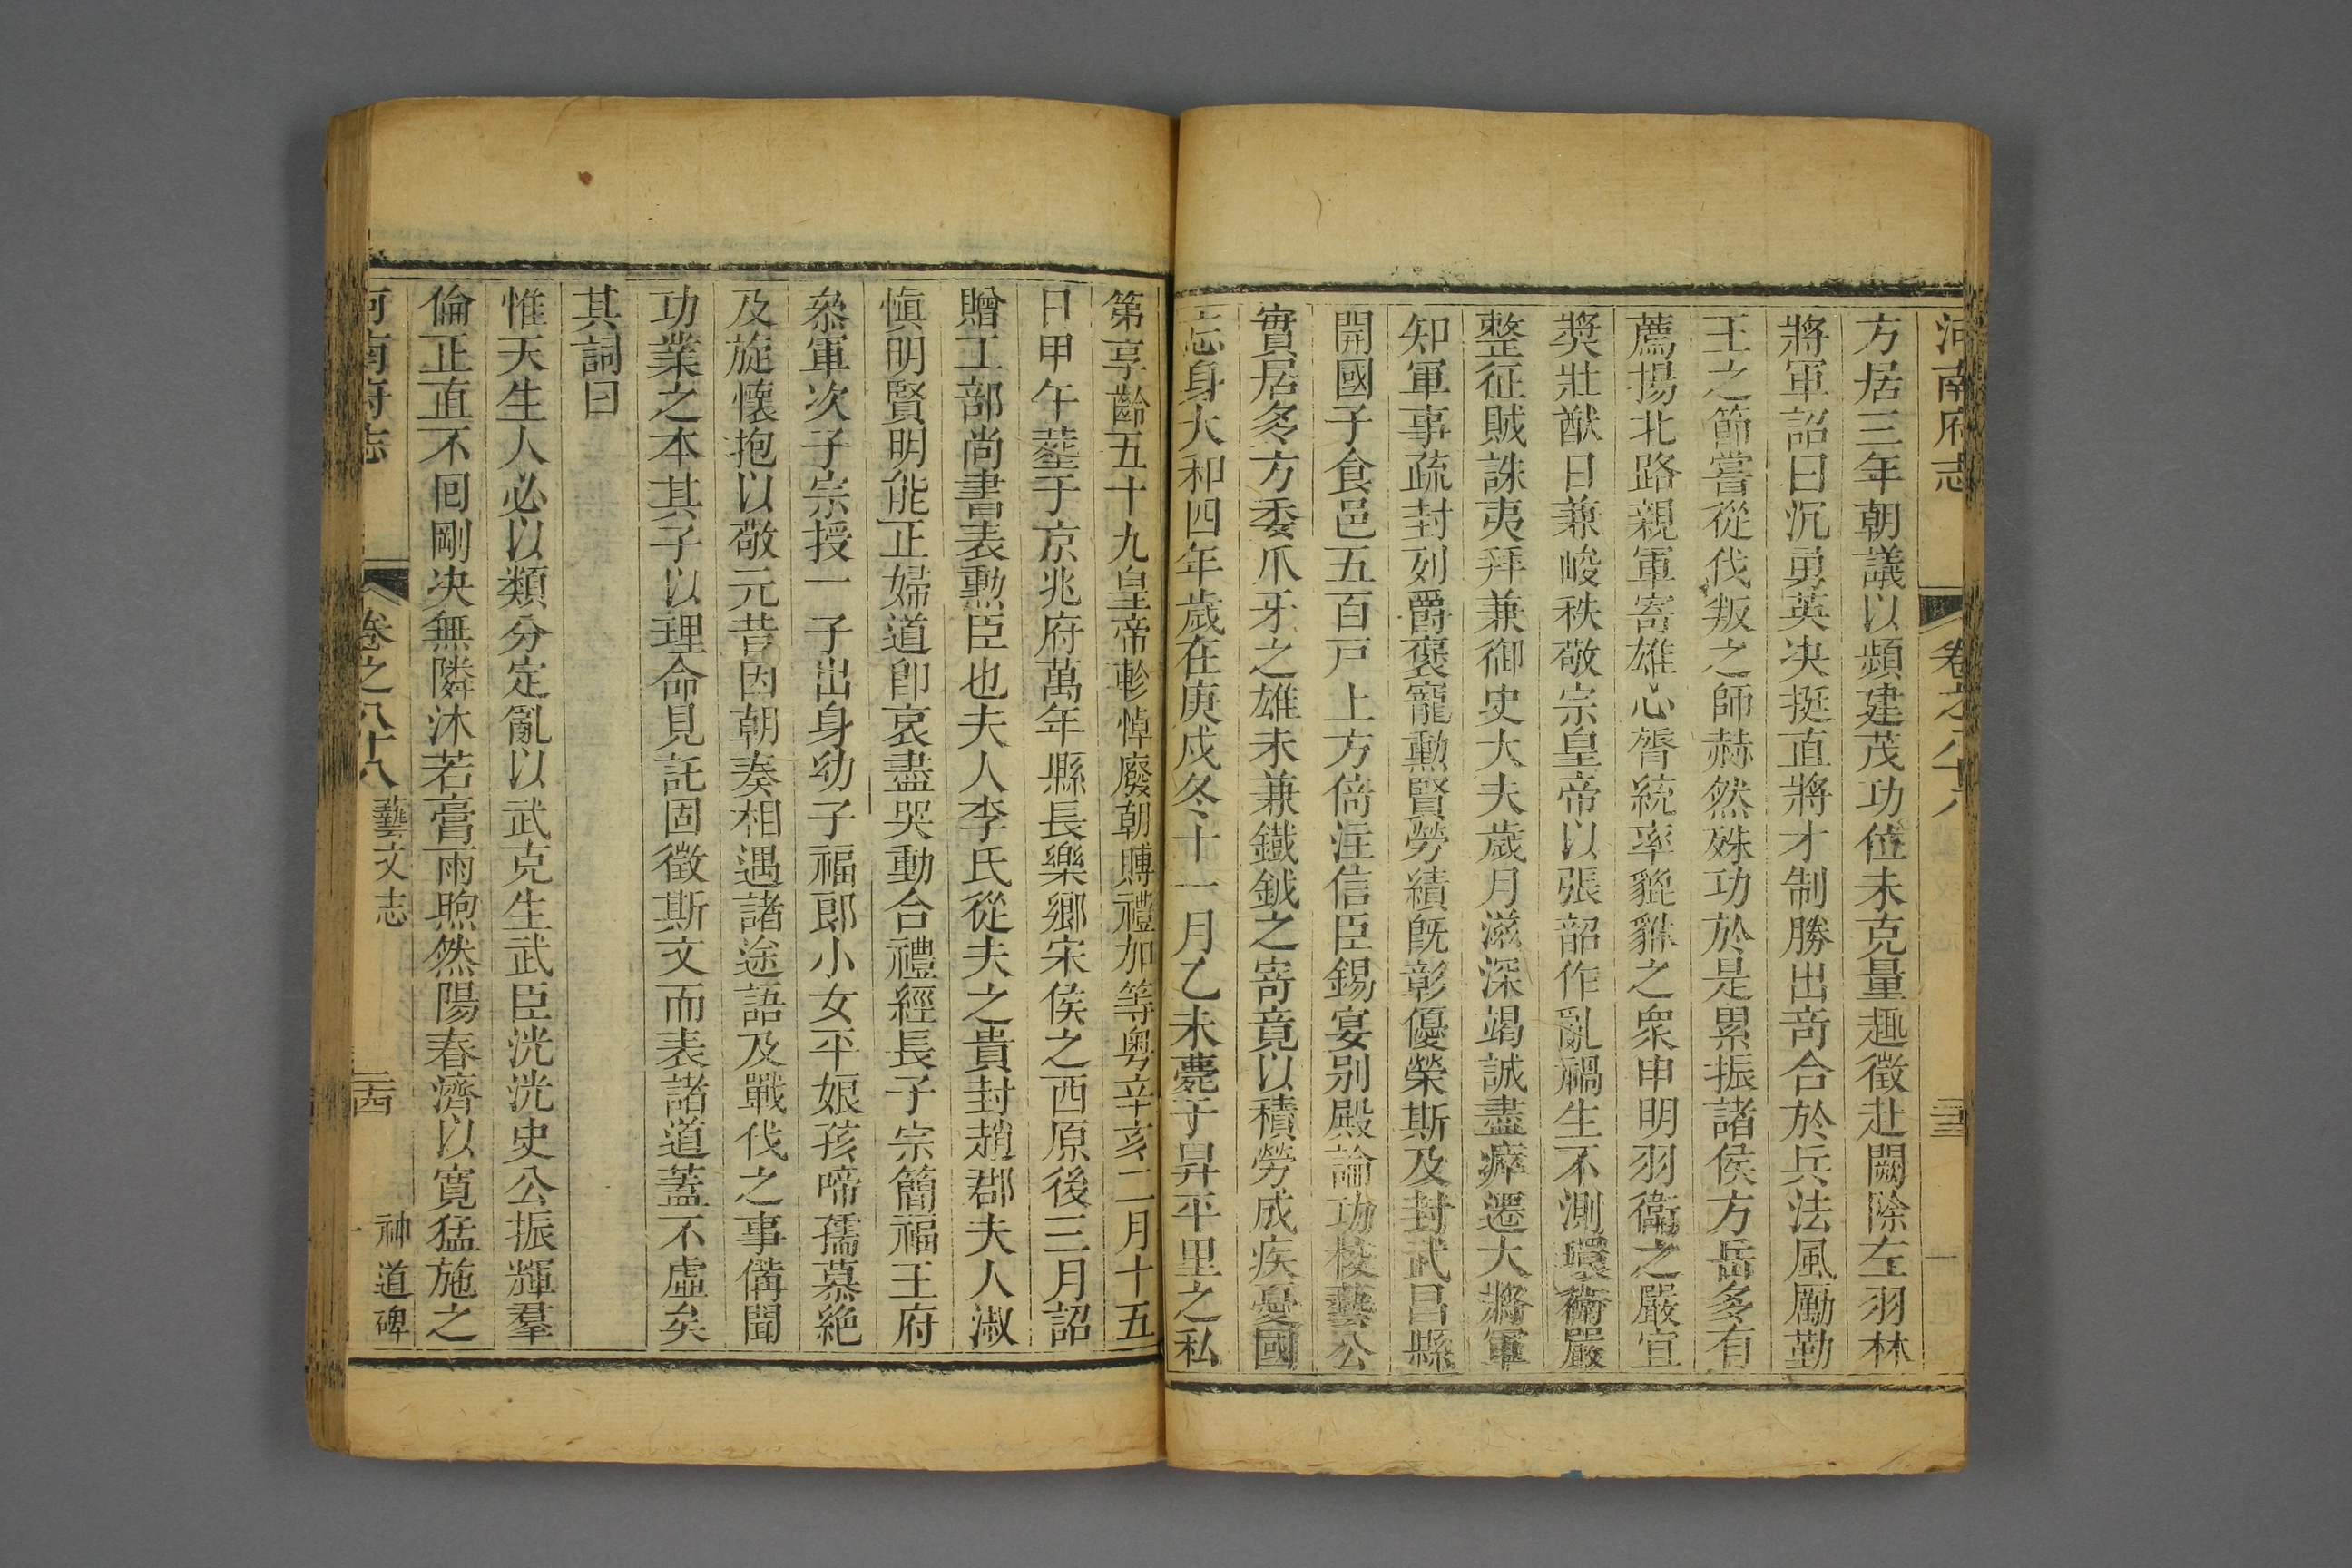 河南府志 卷之八十八 三三
方居三年朝議以頻建茂功位未克量趣徵赴闕除左羽林
將軍詔曰沉勇英决挺直將才制勝出奇合於兵法風勵勤
王之節嘗從伐叛之師赫然殊功於是累振諸侯方岳多有
薦揚北路親軍寄雄心膂統率貔貅之衆申明羽衞之嚴宜
奬壯猷日兼峻秩敬宗皇帝以張韶作亂禍生不測環衛嚴
整征賊誅夷拜兼御史大夫歲月滋深竭誠盡瘁遷大將軍
知軍事疏封列爵褒寵勲賢勞績旣彰優榮斯及封武昌縣
開國子食邑五百戸上方倚注信臣錫宴别殿論功校藝公
實居多方委爪牙之雄未兼鐵鉞之寄竟以積勞成疾憂國
忘身大和四年歲在庚戍冬十一月乙未薨于昇平里之私
第享齡五十九皇帝軫悼廢朝賻禮加等粤辛亥二月十五
日甲午塟于京兆府萬年縣長樂鄉宋侯之西原後三月詔
贈工部尚書表勲臣也夫人李氏從夫之貴封趙郡夫人淑
愼明賢明能正婦道卽哀盡哭動合禮經長子宗簡福王府
叅軍次子宗授一子出身幼子福郎小女平娘孩啼孺慕絶
及旋懷抱以敬元昔因朝奏相遇諸途語及戰伐之事備聞
功業之本其子以理命見託固徵斯文而表諸道蓋不虛矣
其詞曰
惟天生人必以類分定亂以武克生武臣洸洸史公振輝羣
倫正直不囘剛决無隣沐若膏雨煦然陽春濟以寛猛施之
河南府志 卷之八十八 藝文志 神道碑 三四